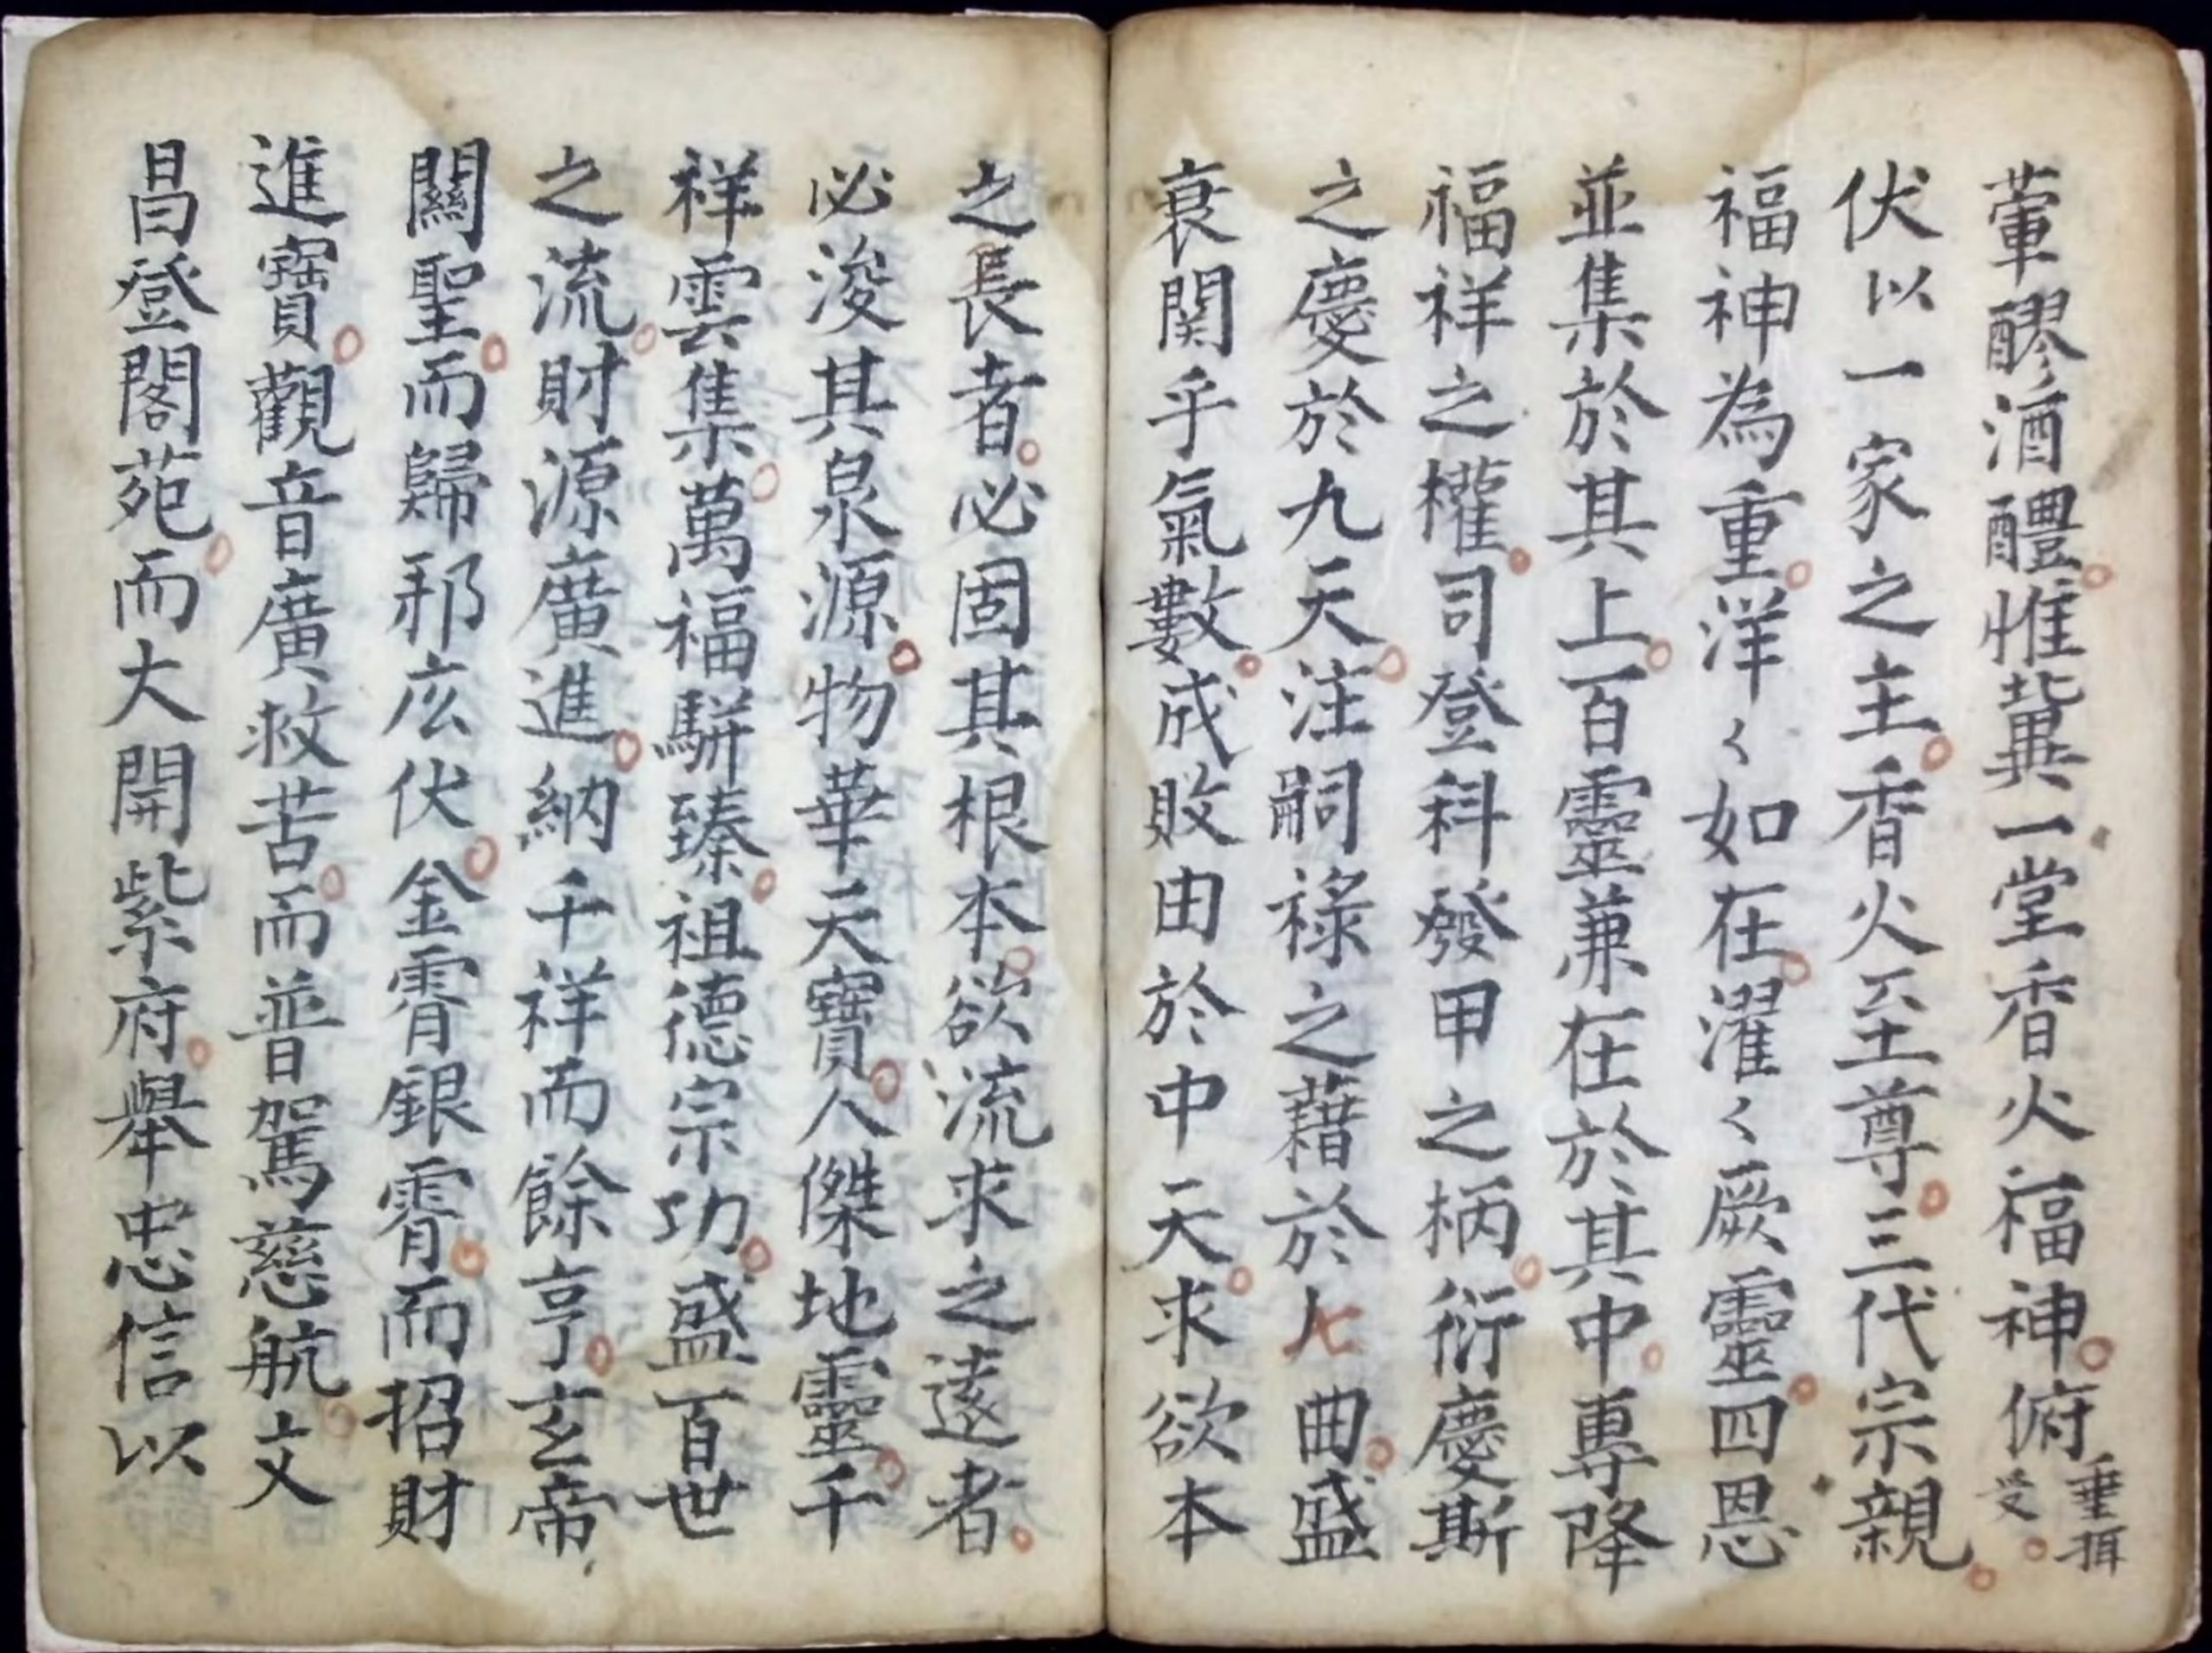 葷醪酒醴。惟冀一堂香火福神。俯垂揖受。
伏以一家之主。香火至尊。三代宗親。
福神為重。洋〻如在。濯〻厥靈。四恩
並集於其上。百靈兼在於其中。專降
福祥之權。司登科發甲之柄。衍慶斯
之慶於九天。注嗣祿之藉於七曲。盛
衰関乎氣數。成敗由於中天。求欲本
之長者。必固其根本。欲流求之遠者。
必浚其泉源。物華天寶。人傑地靈。千
祥雲集。萬福駢臻。祖德宗功。盛百世
之流。財源廣進。納千祥而餘亨。玄帝
關聖。而歸邪庅伏。金霄銀霄。而招財
進寶。觀音廣救苦。而普駕慈航。文
昌登閣苑。而大開紫府。舉忠信以